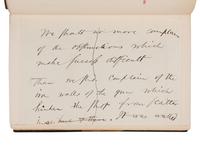 We shall no more complain
of the obstructions which
make success difficult
than we shall complain of the
iron walls of the gun which
hinder the shot from scatter
It was walled